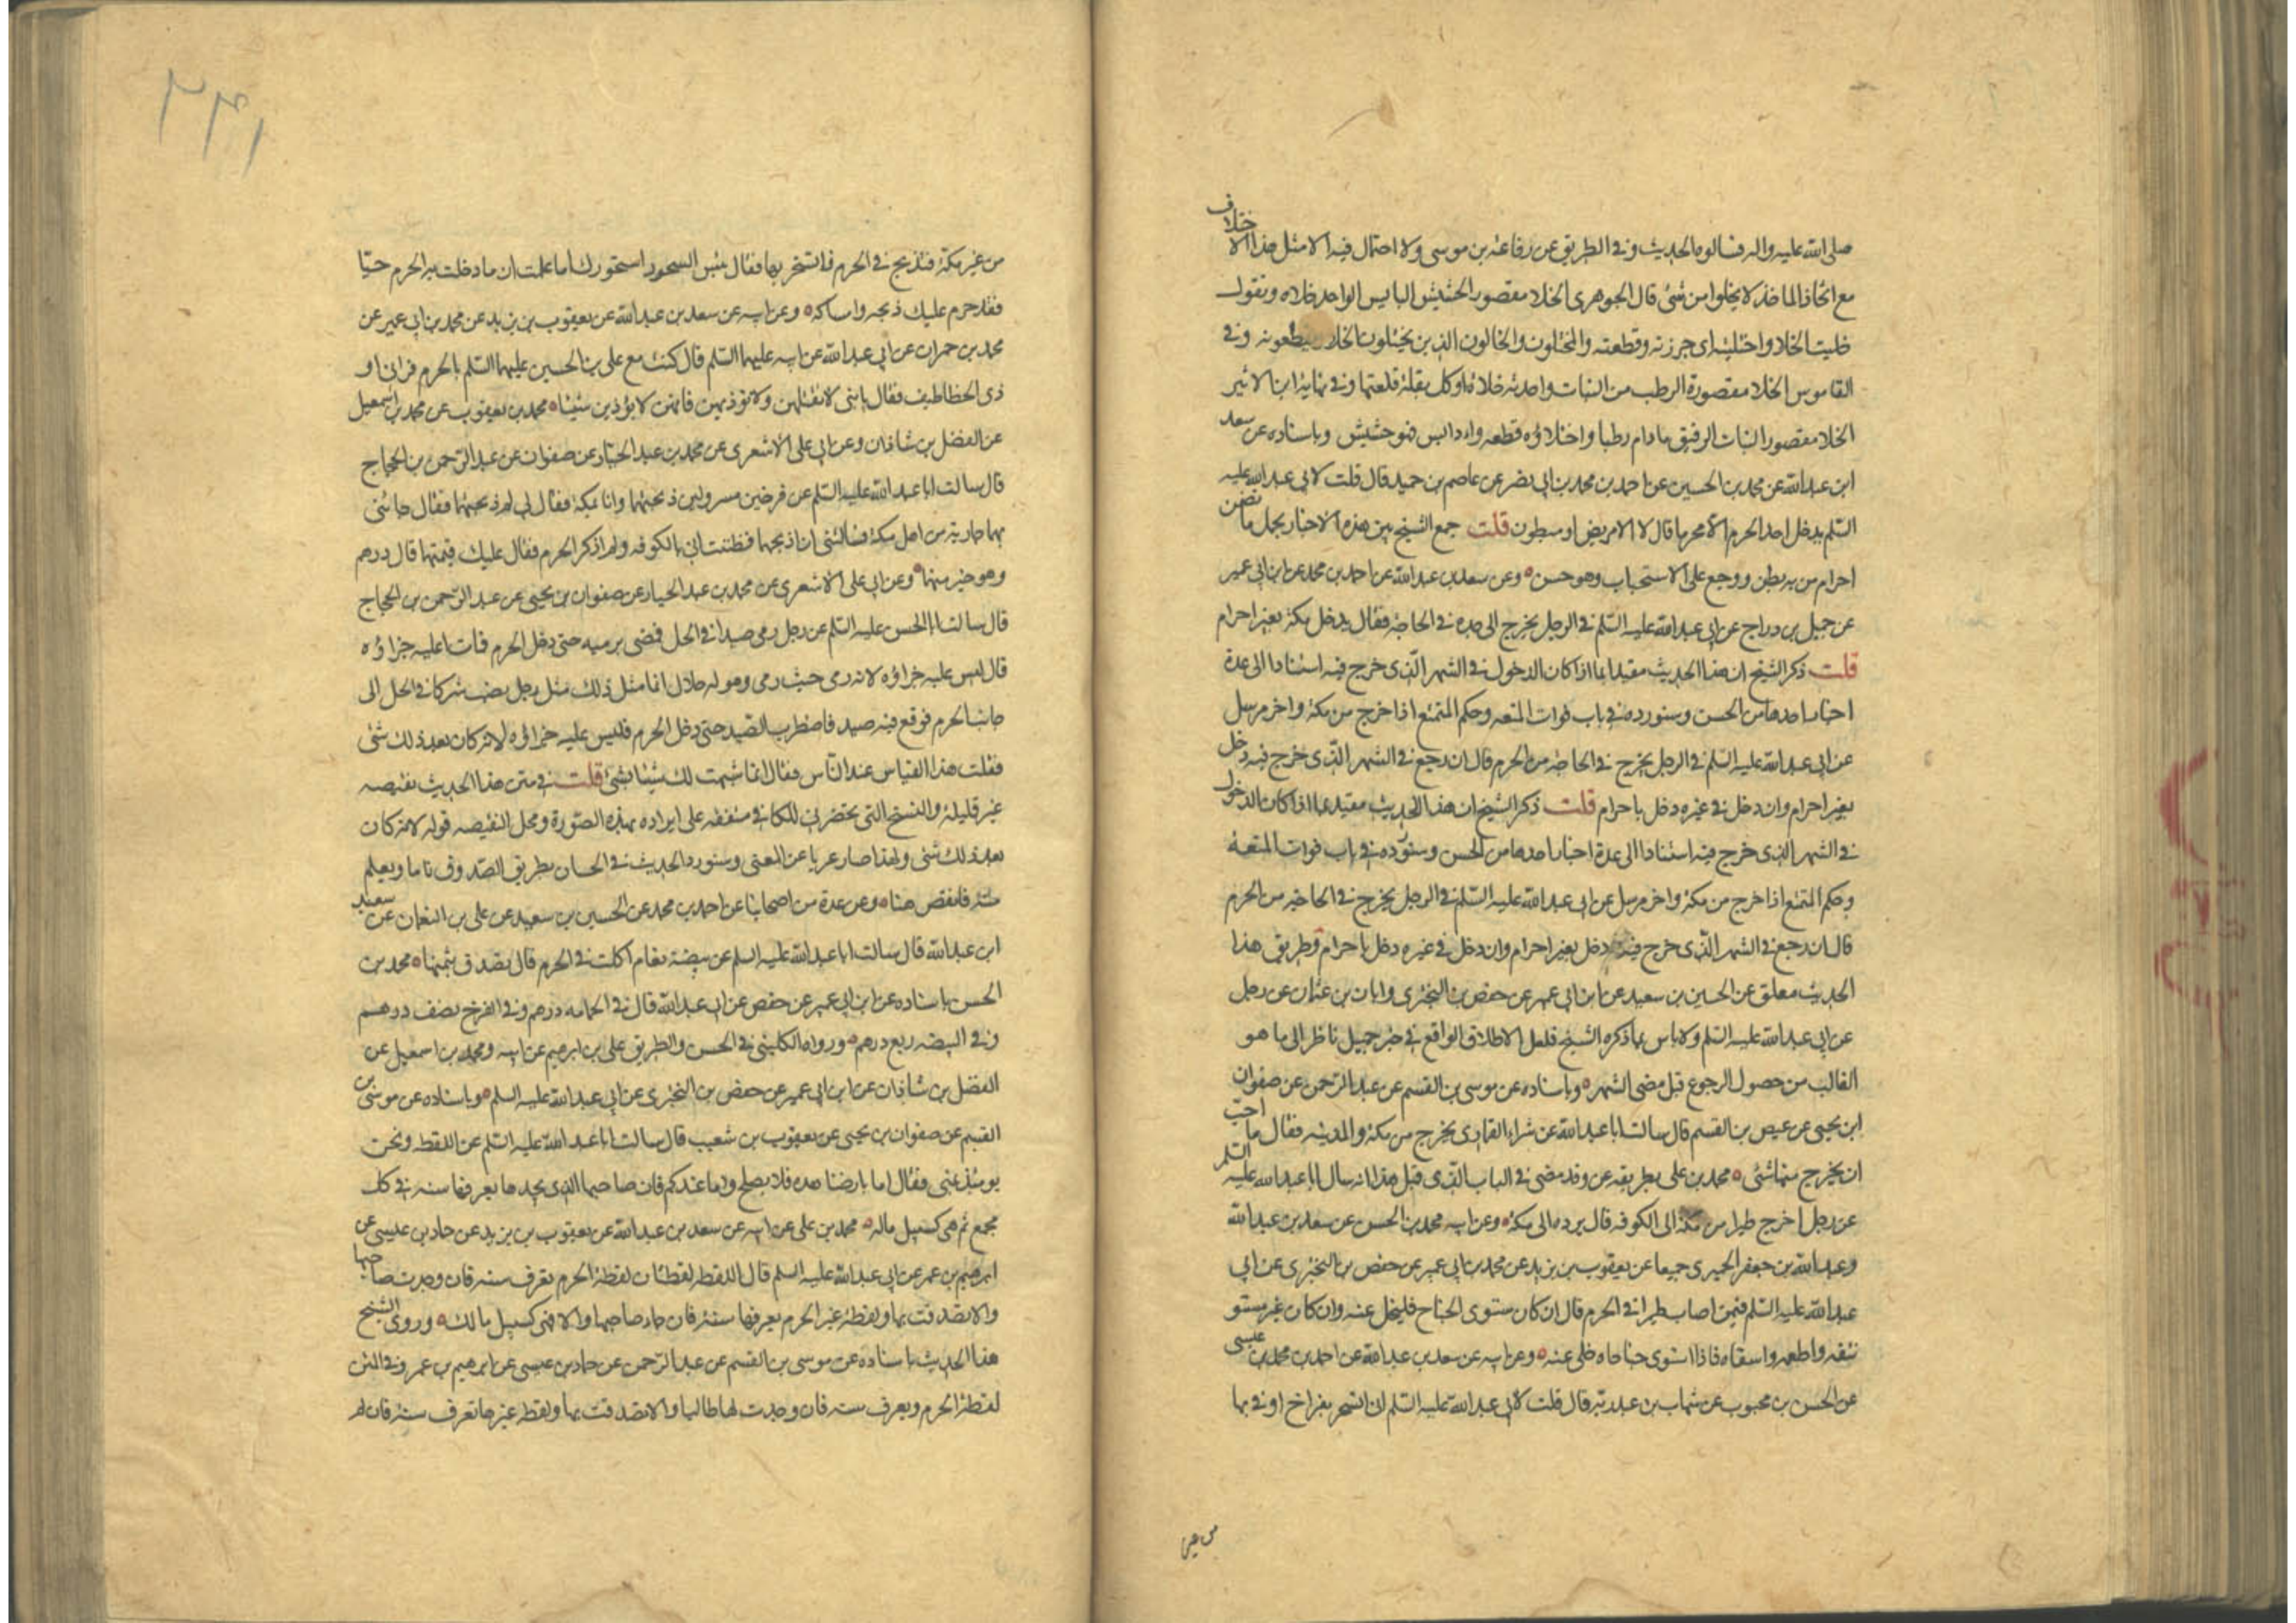 صلى الله عليه واله فسالوه الحديث وفى الطريق عن رفاعة بن موسى ولا احتمال فيه الا مثل هذا الاختلاف
مع اتحاد الماخذ لا يخلوا من شئ قال الجوهرى الخلا مقصور الحشيش اليابس الواحد خلاه وتقول
خليت الخلا واختليته اى جززته وقطعته والمختلون والخالون الذين يختلون الخلا ويقطعونه وفى
القاموس الخلا مقصورة الرطب من النبات واحدته خلاة او كل بقلة قلعتها وفى نهاية ابن الاثير
الخلا مقصور النبات الرقيق مادام رطبا واختلاؤه قطعه واذا يبس فهو حشيش وباسناده عن سعد
ابن عبد الله عن محمد بن الحسين عن احمد بن محمد بن ابى نصر عن عاصم بن حميد قال قلت لابى عبد الله عليه
السلم يدخل احد الحرم الا محرما قال لا الا مريض او مبطون قلت جمع الشيخ بين هذه الاخبار بحمل ما تضمن
احرام من به بطن ووجع على الاستحباب وهو حسن وعن سعد بن عبد الله عن احمد بن محمد عن ابن ابى عمير
عن جميل بن دراج عن ابى عبد الله عليه السلم فى الرجل يخرج الى جده فى الحاجة فقال يدخل مكة بغير احرام
قلت ذكر الشيخ ان هذا الحديث مقيد بما اذا كان الدخول فى الشهر الذى خرج فيه استنادا الى عدة
اخبار احدها من الحسن وسنورده فى باب فوات المتعه وحكم المتمتع اذا خرج من مكة واخر مرسل
عن ابى عبد الله عليه السلم فى الرجل يخرج فى الحاجة من الحرم قال ان رجع فى الشهر الذى خرج فيه دخل
بغير احرام وان دخل فى غيره دخل باحرام قلت ذكر الشيخ ان هذا الحديث مقيد بما اذا كان الدخول
فى الشهر الذى خرج فيه استنادا الى عدة اخبار احدها من الحسن وسنورده فى باب فوات المتعة
وحكم المتمتع اذا خرج من مكة واخر مرسل عن ابى عبد الله عليه السلم فى الرجل يخرج فى الحاجة من الحرم
قال ان رجع فى الشهر الذى خرج فيه دخل بغير احرام وان دخل فى غيره دخل باحرام وطريق هذا
الحديث معلق عن الحسين بن سعيد عن ابن ابى عمير عن حفص بن البخترى وابان بن عثمان عن رجل
عن ابى عبد الله عليه السلم ولا باس بما ذكره الشيخ فلعل الاطلاق الواقع فى خبر جميل ناظر الى ما هو
الغالب من حصول الرجوع قبل مضى الشهر وباسناده عن موسى بن القسم عن عبد الرحمن عن صفوان
ابن يحيى عن عيص بن القسم قال سالت ابا عبد الله عن شراء القمارى يخرج من مكة والمدينه فقال ما احب
ان يخرج منها شئى محمد بن على بطريقه عن وقد مضى فى الباب الذى قبل هذا انه سال ابا عبد الله عليه السلم
عن رجل اخرج طيرا من مكة الى الكوفه قال يرده الى مكة وعن ابيه محمد بن الحسن عن سعد بن عبد الله
وعبد الله بن جعفر الحميرى جميعا عن يعقوب بن يزيد عن محمد بن ابى عمير عن حفص بن البخترى عن ابى
عبد الله عليه السلم فيمن اصاب طيرا فى الحرم قال ان كان مستوى الجناح فليخل عنه وان كان غير مستو
نتفه واطعمه واسقاه فاذا استوى جناحاه خلى عنه وعن ابيه عن سعد بن عبد الله عن احمد بن محمد بن عيسى
عن الحسن بن محبوب عن شهاب بن عبد ربه قال قلت لابى عبد الله عليه السلم انى اتسحر بفراخ اوتى بها
من غير
٣٤١
من غير مكة فتذبح فى الحرم فاتسحر بها فقال بئس السحور سحورك اما علمت ان ما دخلت به الحرم حيا
فقد حرم عليك ذبحه وامساكه وعن ابيه عن سعد بن عبد الله عن يعقوب بن يزيد عن محمد بن ابى عمير عن
محمد بن حمران عن ابى عبد الله عن ابيه عليهما السلم قال كنت مع على بن الحسين عليهما السلم بالحرم فرانى او
ذى الخطاطيف فقال يا بنى لا تقتلهن ولا تؤذيهن فانهن لا يؤذين شيئا محمد بن يعقوب عن محمد بن اسمعيل
عن الفضل بن شاذان وعن ابى على الاشعرى عن محمد بن عبد الجبار عن صفوان عن عبد الرحمن بن الحجاج
قال سالت ابا عبد الله عليه السلم عن فرخين مسرولين ذبحتهما وانا بمكة فقال لى لم ذبحتهما فقال جائتنى
بهما جارية من اهل مكة فسالتنى ان اذبحهما فظننت انى بالكوفه ولم اذكر الحرم فقال عليك قيمتهما قال درهم
وهو خير منهما وعن ابى على الاشعرى عن محمد بن عبد الجبار عن صفوان بن يحيى عن عبد الرحمن بن الحجاج
قال سالت ابا الحسن عليه السلم عن رجل رمى صيدا فى الحل فمضى برميه حتى دخل الحرم فمات اعليه جزاؤه
قال ليس عليه جزاؤه لانه رمى حيث رمى وهو له حلال انما مثل ذلك مثل رجل نصب شركا فى الحل الى
جانب الحرم فوقع فيه صيد فاضطرب الصيد حتى دخل الحرم فليس عليه جزاؤه لانه كان بعد ذلك شئى
فقلت هذا القياس عند الناس فقال انما شبهت لك شيئا بشئ قلت فى متن هذا الحديث نقيصه
غير قليلة والنسخ التى تحضرنى للكافى متفقه على ايراده بهذه الصورة ومحل النقيصه قوله لانه كان
بعد ذلك شئى ولهذا صار عريا عن المعنى وسنورد الحديث فى الحسان بطريق الصدوق تاما ويعلم
منه ما نقص هنا وعن عدة من اصحابنا عن احمد بن محمد عن الحسين بن سعيد عن على بن النعمان عن سعيد
ابن عبد الله قال سالت ابا عبد الله عليه السلم عن بيضة نعام اكلت فى الحرم قال تصدق بثمنها محمد بن
الحسن باسناده عن ابن ابى عمير عن حفص عن ابى عبد الله قال فى الحمامه درهم وفى الفرخ نصف درهم
وفى البيضه ربع درهم ورواه الكلينى فى الحسن والطريق على بن ابرهيم عن ابيه ومحمد بن اسمعيل عن
الفضل بن شاذان عن ابن ابى عمير عن حفص بن البخترى عن ابى عبد الله عليه السلم وباسناده عن موسى بن
القسم عن صفوان بن يحيى عن يعقوب بن شعيب قال سالت ابا عبد الله عليه السلم عن اللقطه ونحن
يومئذ بمنى فقال اما بارضنا هذه فلا يصلح واما عندكم فان صاحبها الذى يجدها يعرفها سنه فى كل
مجمع ثم هى كسبيل ماله محمد بن على عن ابيه عن سعد بن عبد الله عن يعقوب بن يزيد عن حماد بن عيسى عن
ابرهيم بن عمر عن ابى عبد الله عليه السلم قال اللقطه لقطتان لقطة الحرم تعرف سنه فان وجدت صاحبها
والا تصدقت بها ولقطة غير الحرم يعرفها سنة فان جاء صاحبها والا فهى كسبيل مالك وروى الشيخ
هذا الحديث باسناده عن موسى بن القسم عن عبد الرحمن عن حماد بن عيسى عن ابرهيم بن عمر وفى المتن
لقطة الحرم ويعرف سنه فان وجدت لها طالبا والا تصدقت بها ولقطه غيرها تعرف سنة فان لم